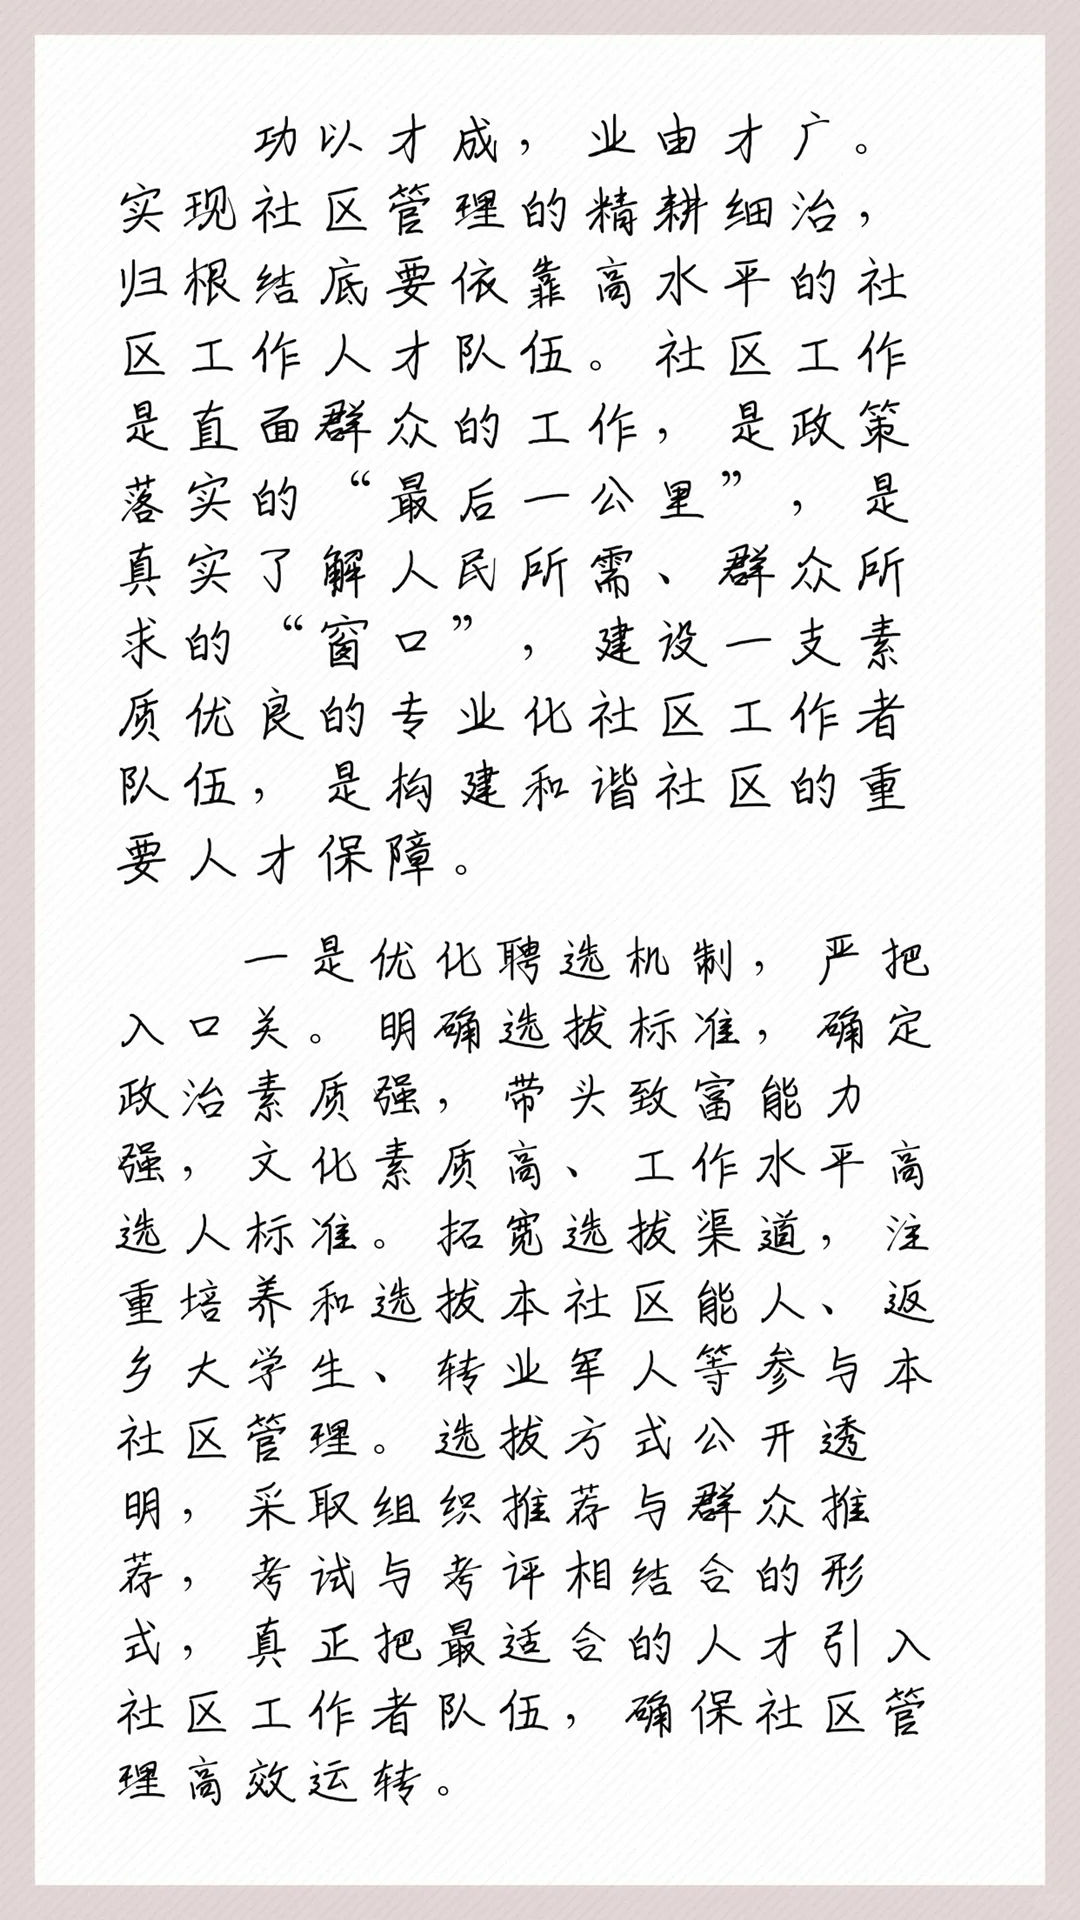 功以才成，业由才广。
实现社区管理的精耕细治，
归根结底要依靠高水平的社
区工作人才队伍。社区工作
是直面群众的工作，是政策
落实的“最后一公里”，是
真实了解人民所需、群众所
求的“窗口”，建设一支素
质优良的专业化社区工作者
队伍，是构建和谐社区的重
要人才保障。
一是优化聘选机制，严把
入口关。明确选拔标准，确定
政治素质强，带头致富能力
强，文化素质高、工作水平高
选人标准。拓宽选拔渠道，注
重培养和选拔本社区能人、返
乡大学生、转业军人等参与本
社区管理。选拔方式公开透
明，采取组织推荐与群众推
荐，考试与考评相结合的形
式，真正把最适合的人才引入
社区工作者队伍，确保社区管
理高效运转。